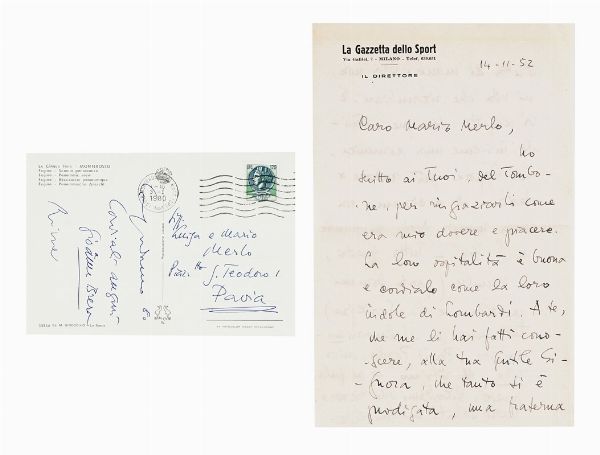 LA GRANDE
Cordiali auguri
Gianni Brera
1980
Luigia e Mario
Merlo
P.zza S. Teodoro 1
Pavia
La Gazzetta dello Sport
Via Galilei, 7 - MILANO - Telef.
IL DIRETTORE
14-11-52
Caro Mario Merlo,
ho
scritto ai Tuoi del Tombo-
ne, per ringraziarli come
era mio dovere e piacere.
La loro ospitalità è buona
e cordiale come la loro
indole di Lombardi. A te,
che me li hai fatti cono-
scere, alla tua gentile Si-
gnora, che tanto si è
prodigata, una fraterna